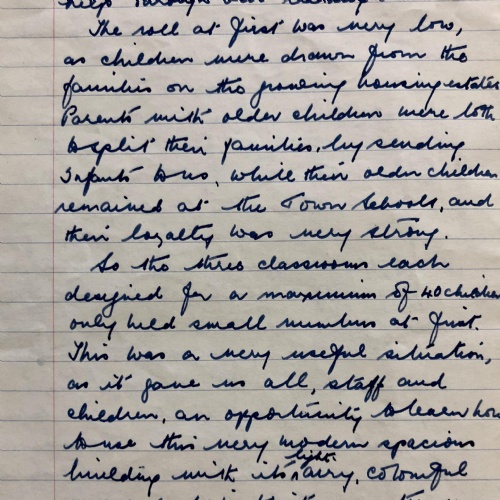 help through
The roll at first was very low,
as children were drawn from the
families on the growing housing estates
Parents with older children were loth
to split their families, by sending
Infants to us, while their older children
remained at the Town Schools, and
their loyalty was very strong.
So the three classrooms each
designed for a maximum of 40 children
only held small numbers at first.
This was a very useful situation,
as it gave us all, staff and
children, an opportunity to learn how
to use this very modern spacious
light
building with its airy, colourful